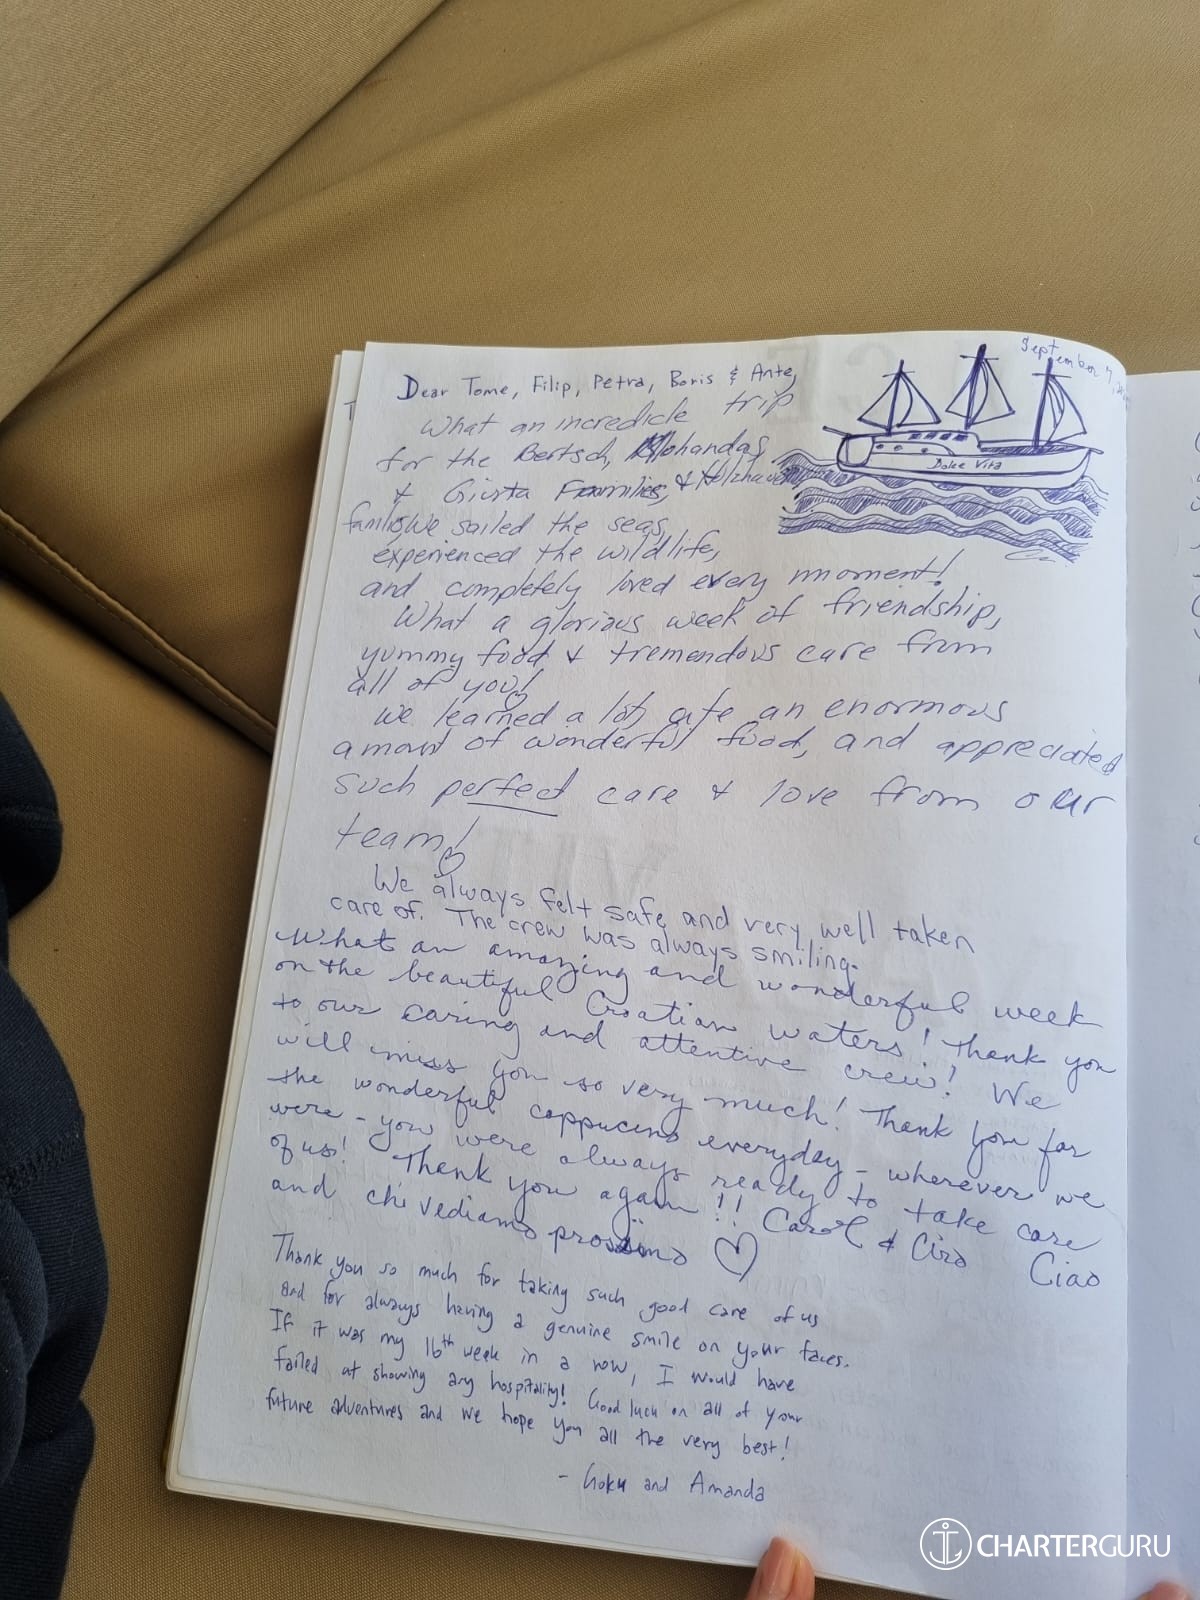 September 7, 20
Dear Tome, Filip, Petra, Boris & Ante,
What an incredicle trip
for the Bertsch, Mohandas,
& Giusta Families, & Holzhauer
families We sailed the seas,
experienced the wildlife,
and completely loved every moment!
What a glorious week of friendship,
yummy food & tremendous care from
all of you!
We learned a lot, ate an enormous
amount of wonderful food, and appreciated
such perfect care & love from our
team!
We always felt safe and very well taken
care of. The crew was always smiling.
What an amazing and wonderful week
on the beautiful Croatian waters! Thank you
to our caring and attentive crew! We
will miss you so very much! Thank you for
the wonderful cappucino everyday - wherever we
were - you were always ready to take care
of us! Thank you again!! Carol & Ciro
and chi vediamo prossimo ♡ Ciao
Thank you so much for taking such good care of us
and for always having a genuine smile on your faces.
If it was my 16th week in a row, I would have
failed at showing any hospitality! Good luck on all of your
future adventures and we hope you all the very best!
- Goku and Amanda
Dolce Vita
CHARTERGURU